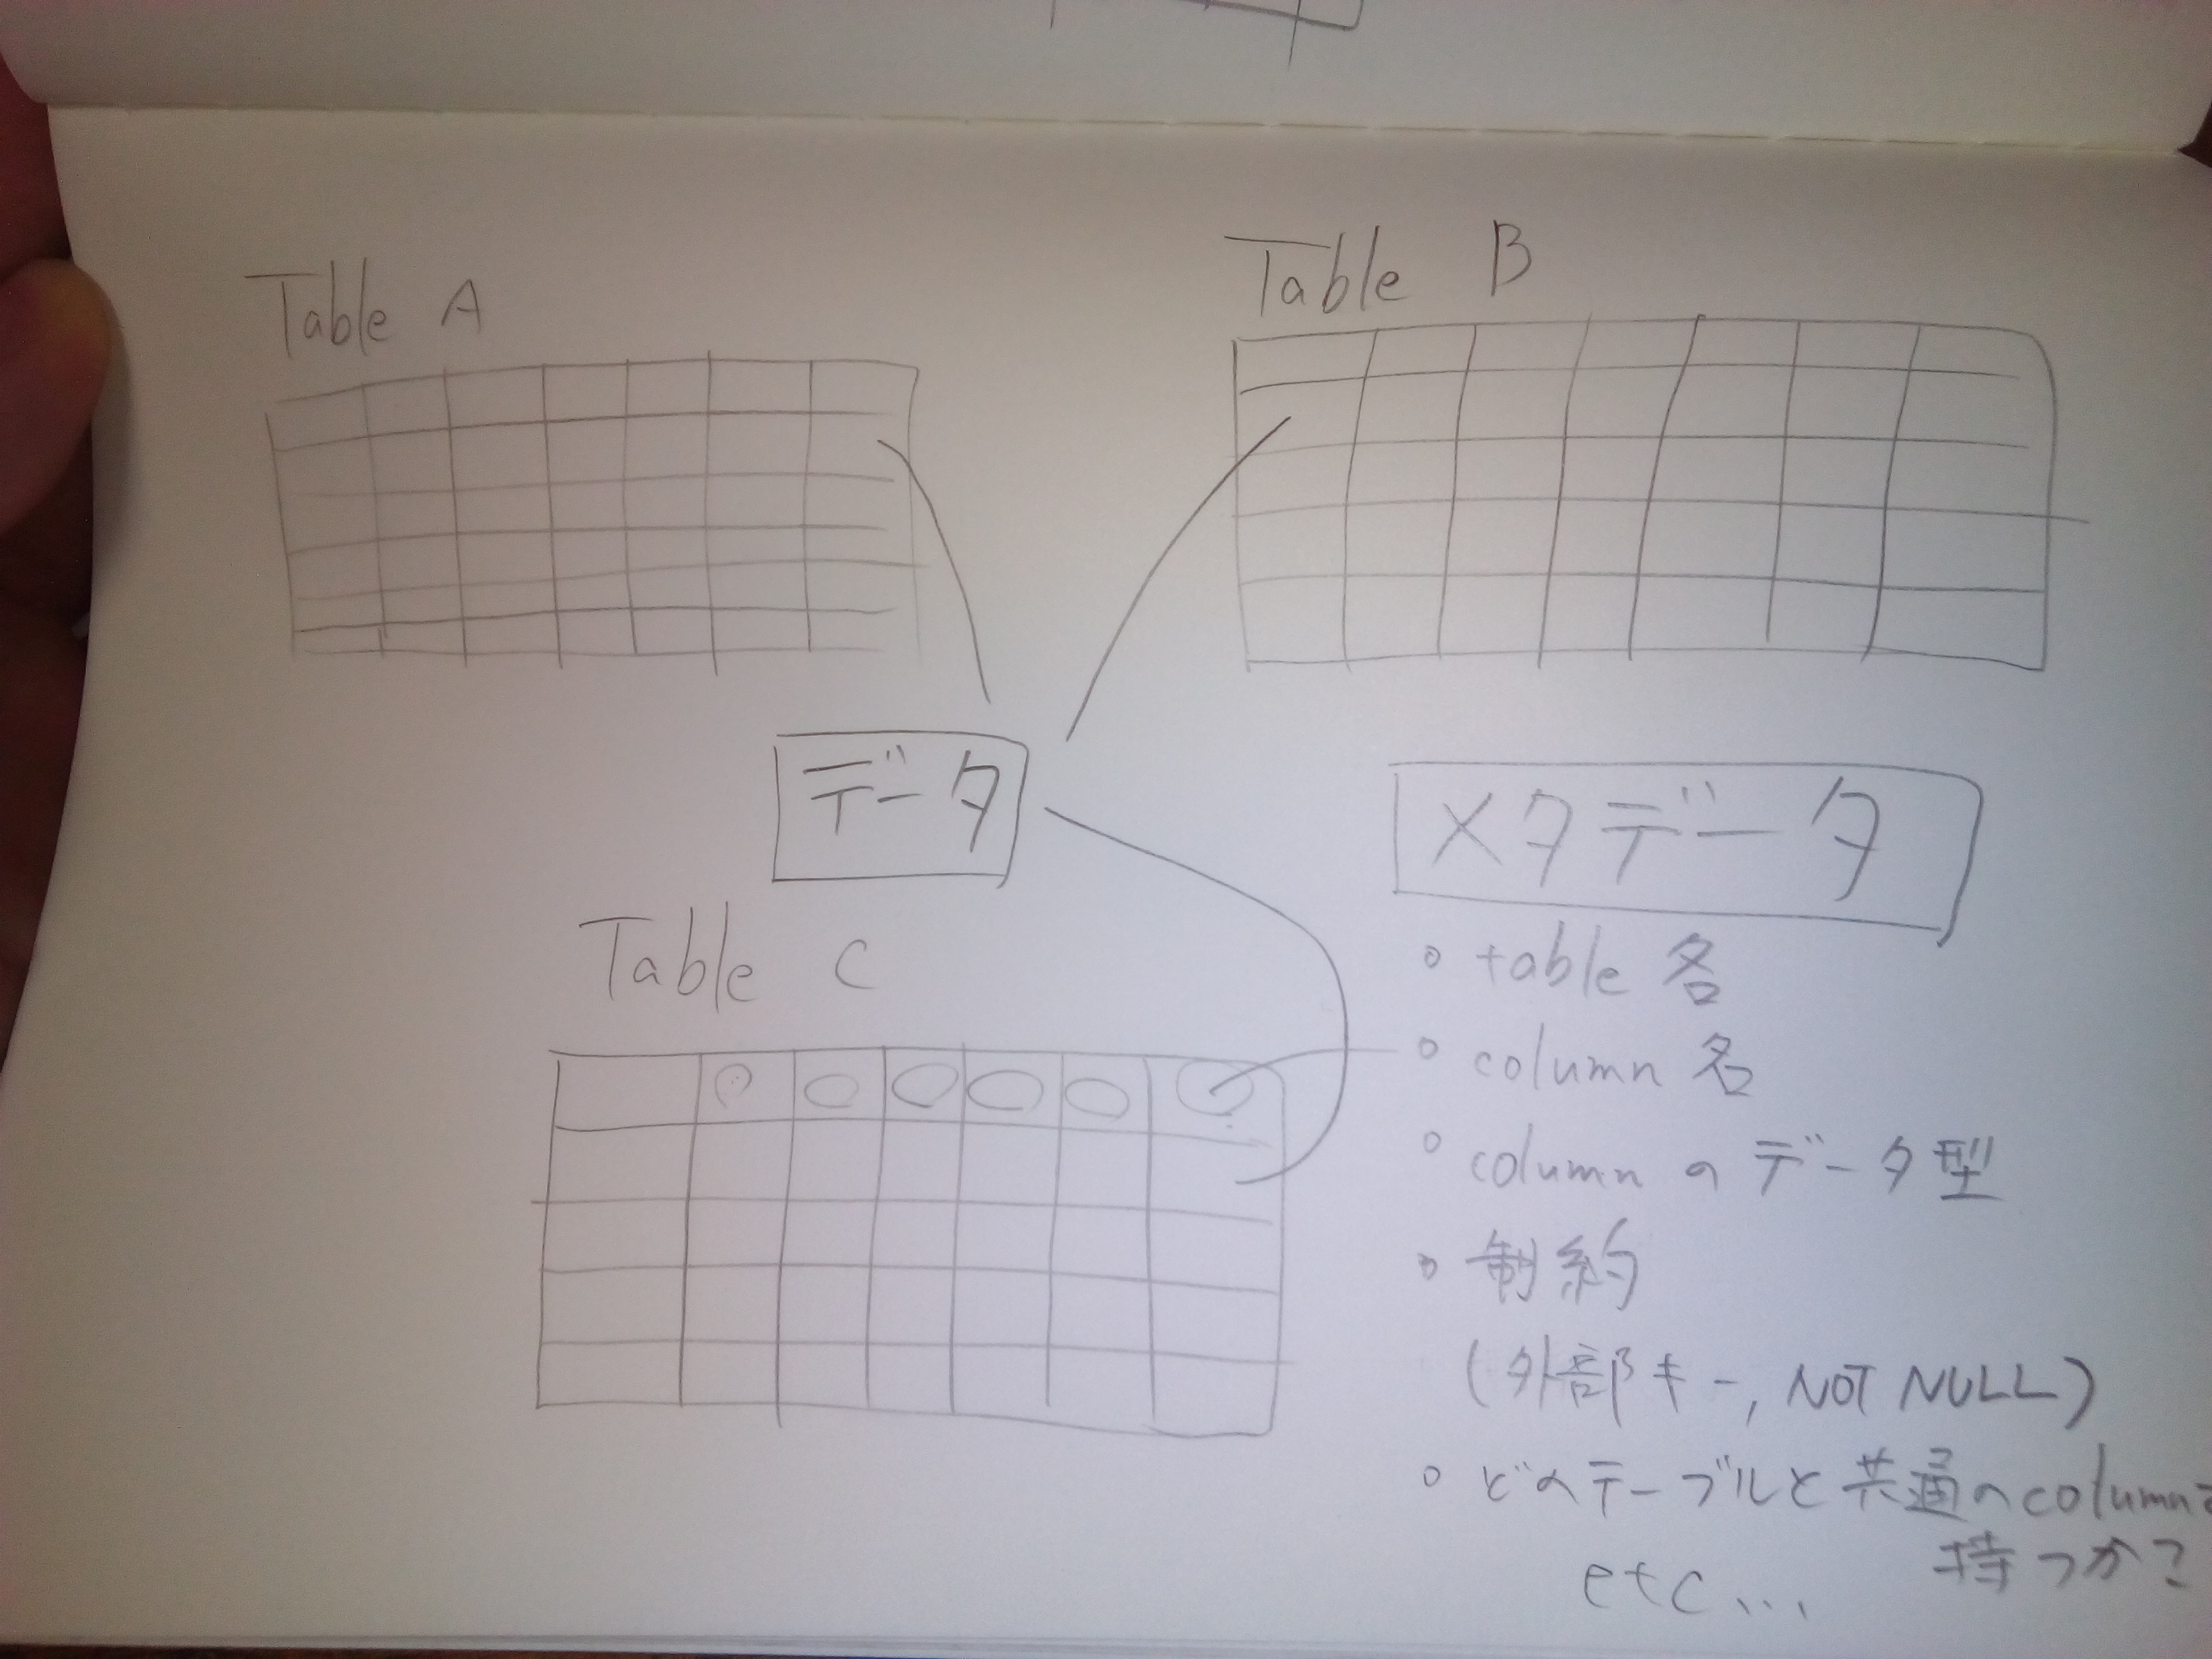 Table A
Table B
データ
メタデータ
Table C
○ table 名
○ column 名
○ column のデータ型
○ 制約
(外部キー, NOT NULL)
○ どのテーブルと共通のcolumnを
持つか?
etc...